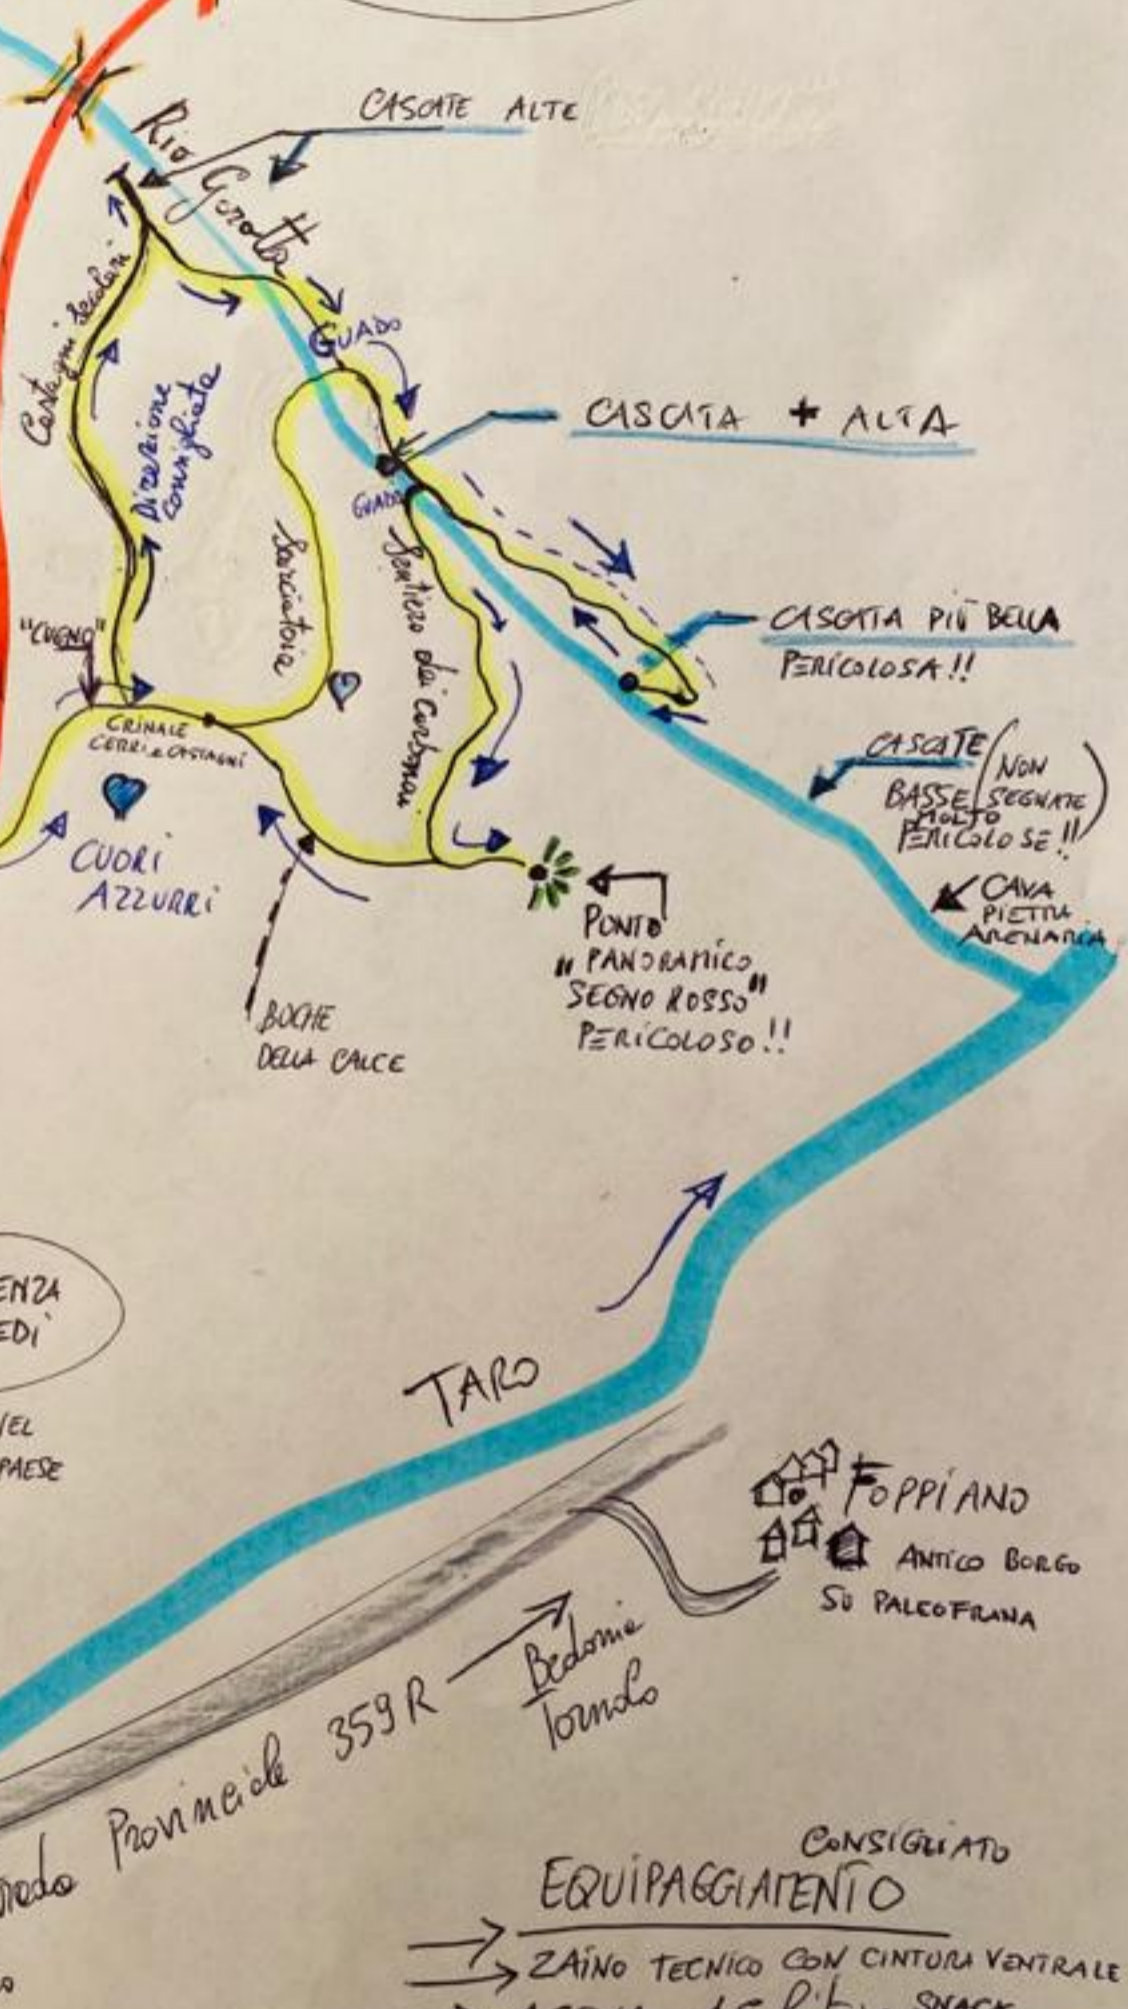 CASCATE ALTE
Rio
Gorotta
GUADO
Castagni secolari
Direzione
consigliata
CASCATA + ALTA
GUADO
Scorciatoia
Sentiero dei Carbonai
CASCATA PIÙ BELLA
PERICOLOSA!!
CRINALE
CERRI e CASTAGNI
CUORI
AZZURRI
CASCATE
BASSE (NON
SEGNATE)
MOLTO
PERICOLOSE!!
CAVA
PIETRA
ARENARIA
PUNTO
" PANORAMICO
SEGNO ROSSO"
PERICOLOSO!!
BUCHE
DELLA CALCE
ENZA
EDI
TARO
NEL
PAESE
FOPPIANO
ANTICO BORGO
SU PALEOFRANA
Provinciale 359R
Bedonia
Tornolo
CONSIGLIATO
EQUIPAGGIAMENTO
ZAINO TECNICO CON CINTURA VENTRALE
SNACK